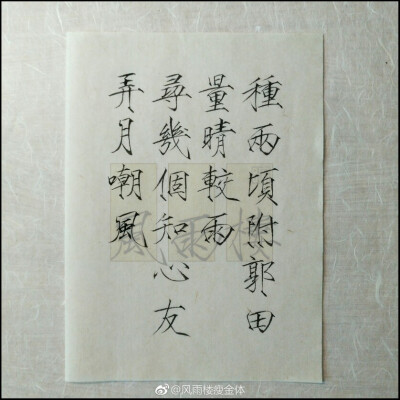 種兩頃附郭田
量晴較雨
尋幾個知心友
弄月嘲風
風雨樓
@风雨楼瘦金体